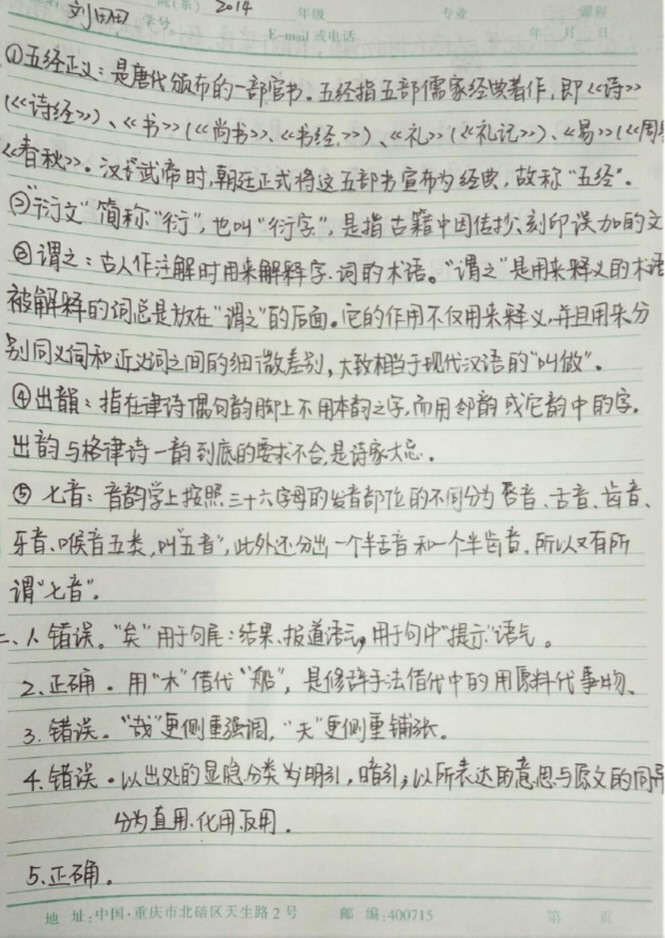 刘田田 学号 院(系) 2014 年级 专业 课程
E-mail 或电话 年 月 日
①五经正义：是唐代颁布的一部官书。五经指五部儒家经典著作，即《诗》
(《诗经》)、《书》(《尚书》、《书经》)、《礼》(《礼记》)、《易》(《周
《春秋》。汉武帝时，朝廷正式将这五部书宣布为经典，故称"五经"。
②"衍文"简称"衍"，也叫"衍字"，是指古籍中因传抄、刻印误加的文
③谓之：古人作注解时用来解释字、词的术语。"谓之"是用来释义的术语
被解释的词总是放在"谓之"的后面。它的作用不仅用来释义，并且用来分
别同义词和近义词之间的细微差别，大致相当于现代汉语的"叫做"。
④出韻：指在律诗偶句韵脚上不用本韵之字，而用邻韵或它韵中的字。
出韵与格律诗一韵到底的要求不合，是诗家大忌。
⑤七音：音韵学上按照三十六字母的发音部位的不同分为唇音、舌音、齿音、
牙音、喉音五类，叫"五音"，此外还分出一个半舌音和一个半齿音。所以又有所
谓"七音"。
二、1.错误。"矣"用于句尾：结果、报道语气，用于句中"提示"语气。
2、正确。用"木"借代"船"，是修辞手法借代中的用原料代事物。
3.错误。"哉"更侧重强调，"夫"更侧重铺张。
4.错误。以出处的显隐分类为明引，暗引；以所表达的意思与原文的同异
分为直用、化用、反用。
5.正确。
地 址:中国·重庆市北碚区天生路2号 邮 编:400715 第 页